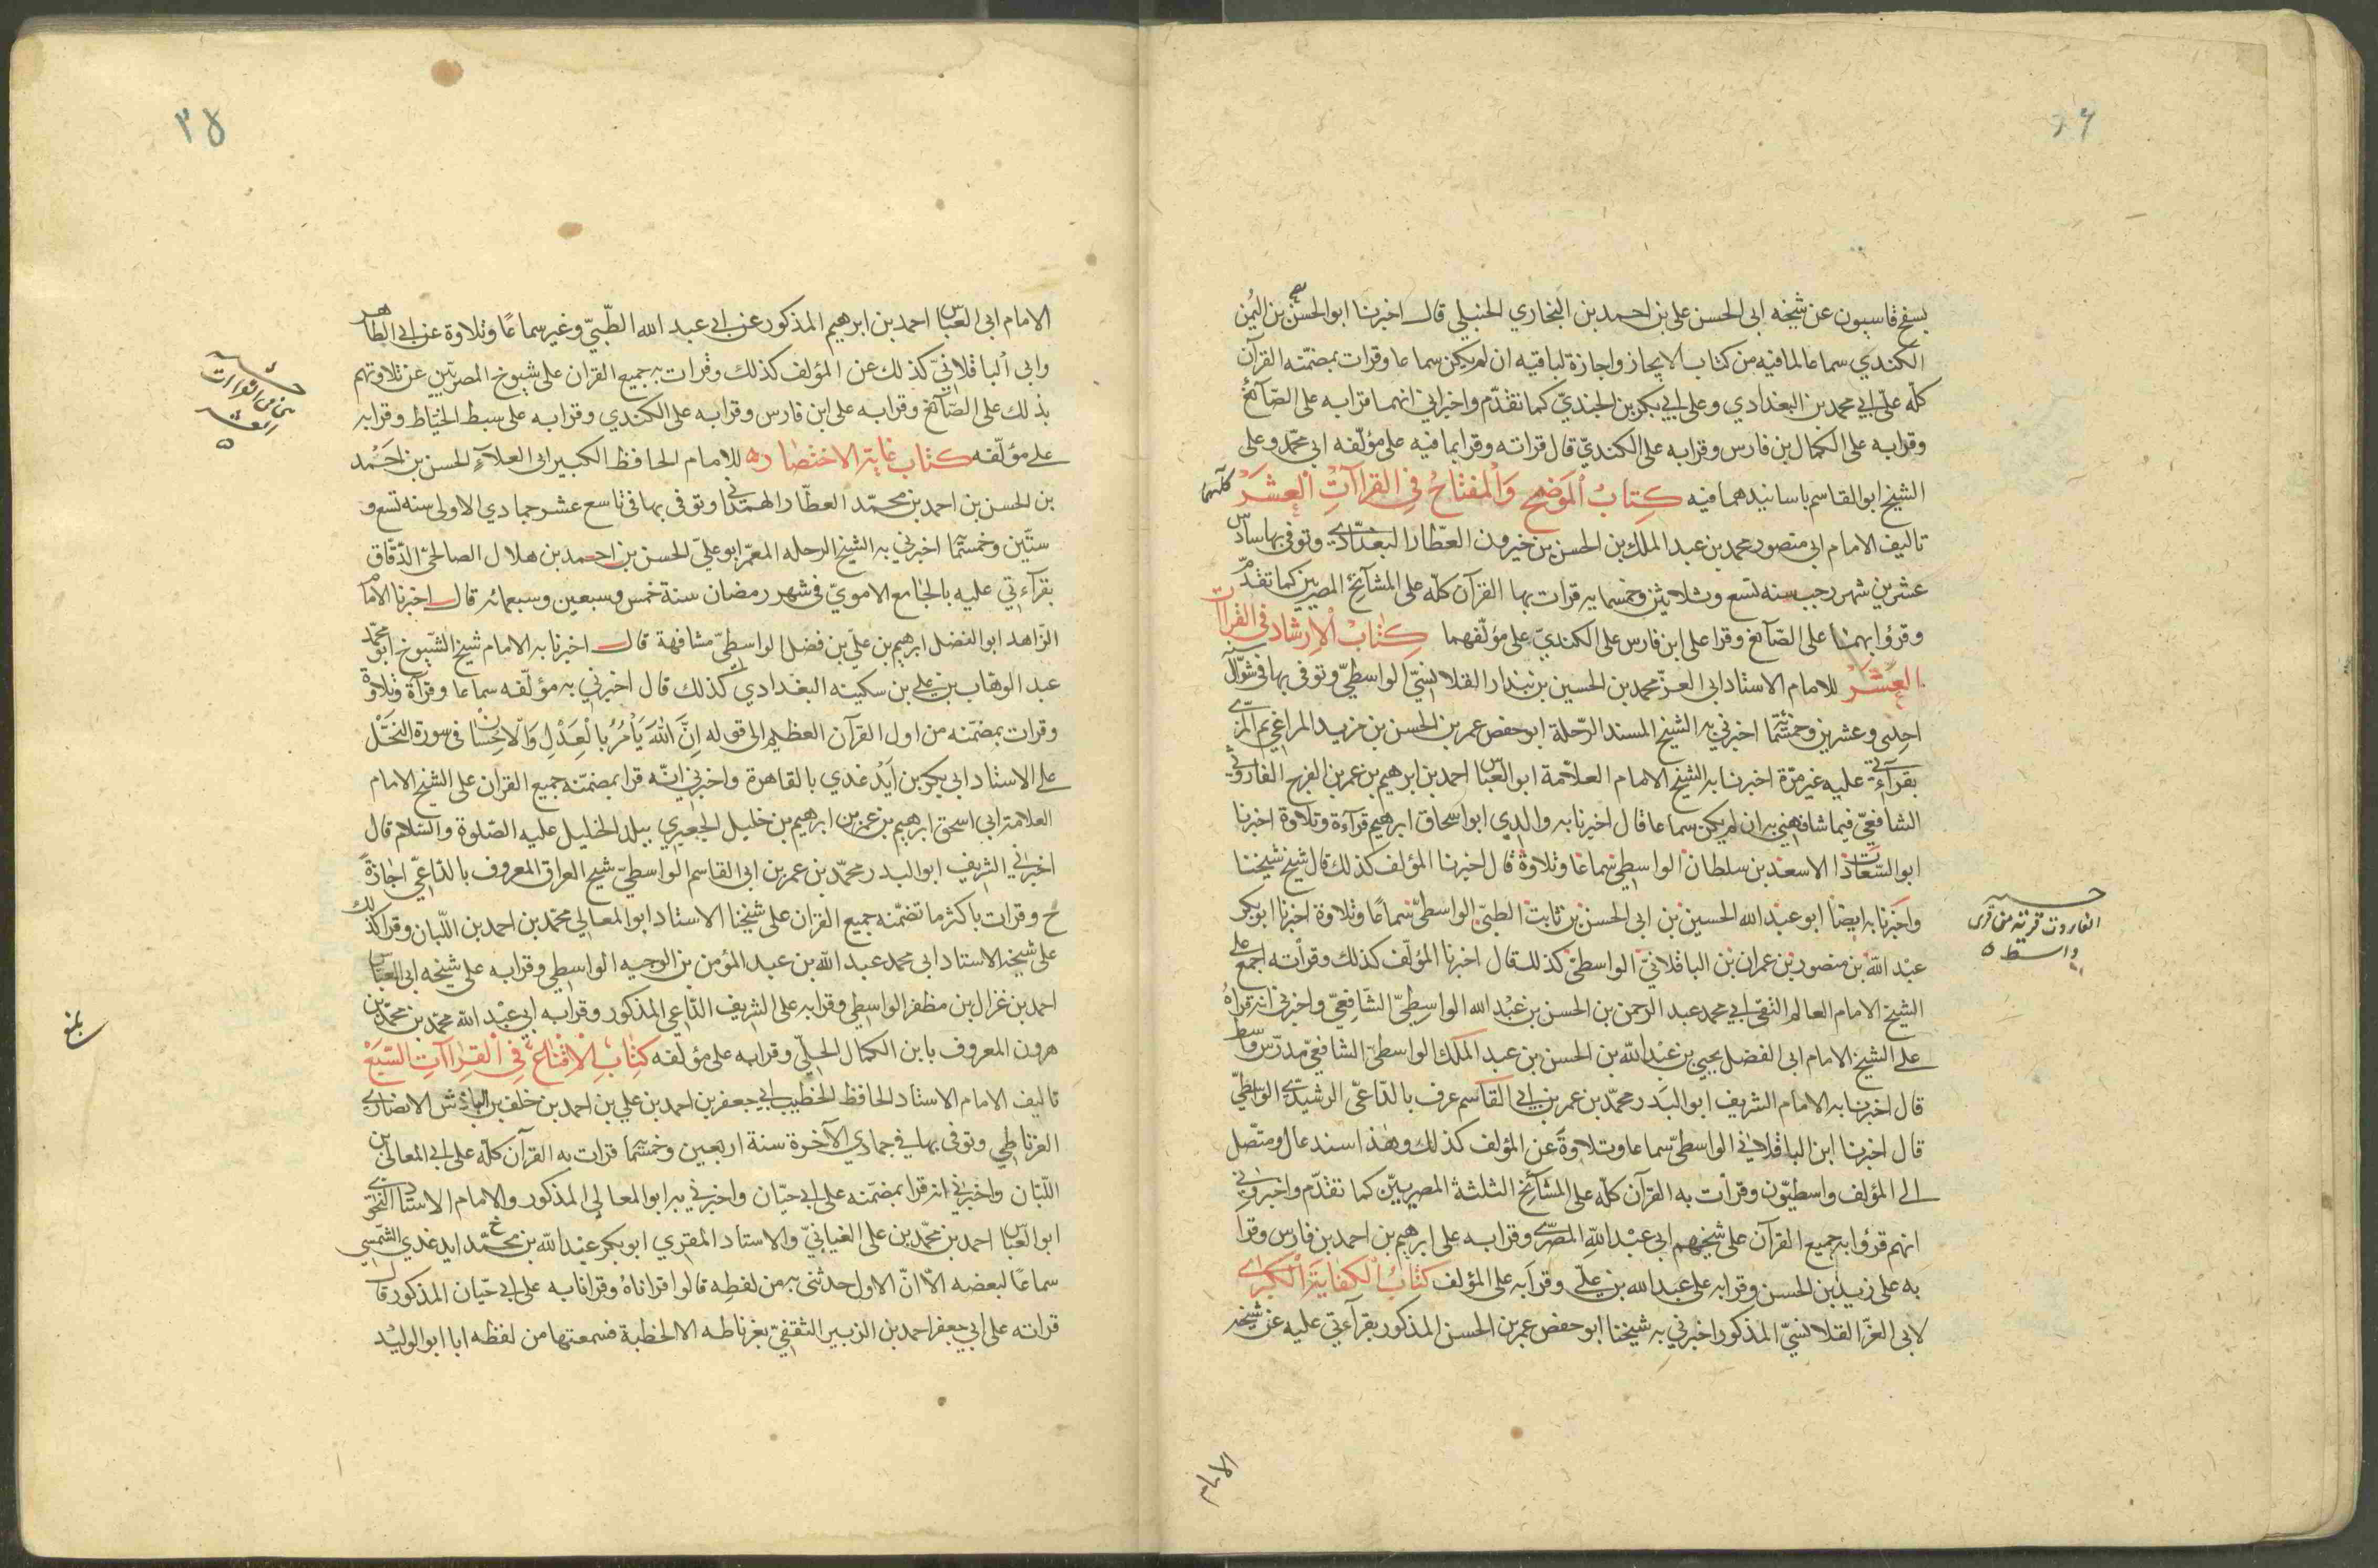 بسفح قاسيون عن شيخه ابى الحسن على بن احمد بن البخاري الحنبلي قال اخبرنا ابو الحسن بن اليُمن
الكندي سماعا لما فيه من كتاب الايجاز واجازة لباقيه ان لم يكن سماعا وقرات بمضمّنه القرآن
كلّه على ابي محمد بن البغدادي وعلى ابي بكر بن الجنديّ كما تقدّم واخبراني انهما قرابه على الصّآئغ
وقرابه على الكمال بن فارس وقرابه على الكنديّ قال قراته وقرا بما فيه على مؤلّفه ابى محمّد وعلى
الشيخ ابو القاسم باسانيدهما فيه كِتابُ المَوضح وَالْمفتاحُ فِي القراآتِ الْعِشَرْ كلٓهما
تاليف الامام ابى منصور محمد بن عبد الملك بن الحسن بن خيرون العطّار البغدادي وتوفى بها سادس
عشرين شهر رجب سنه تسع وثلاثين وخمسمايه قرات بها القرآن كلّه على المشآئخ المصريين كما تقدّم
وقرؤا بهما على الصّآئغ وقرا على ابن فارس على الكنديّ على مؤلّفهما كتابُ الْاِرشاد فى القرآت
العِشَرْ للامام الاستاد ابى العزّ محمد بن الحسين بن بندار القلانسيّ الواسطيّ وتوفى بها فى شوّال سنه
احدى وعشرين وخمسما اخبرني به الشيخ المسند الرّحلة ابو حفص عمر بن الحسن بن مزيد المراغي ثم المزّي
بقرآءتي عليه غير مرّة اخبرنا به الشيخ الامام العلاّمة ابو العباس احمد بن ابرهيم بن عمر بن الفرج الفاروثي
الشافعيّ فيما شافهني به ان لم يكن سماعا قال اخبرنا به والدي ابو اسحاق ابرهيم قرآءة وتلاوة اخبرنا
ابو السّعادات الاسعد بن سلطان الواسطي سماعا وتلاوة قال اخبرنا المؤلف كذلك قال شيخ شيخنا
واخبرنا به ايضا ابو عبد الله الحسين بن ابى الحسن بن ثابت الطيبيّ الواسطيّ سماعا وتلاوة اخبرنا ابو بكر
عبد الله بن منصور بن عمران بن الباقلانيّ الواسطيّ كذلك قال اخبرنا المؤلّف كذلك وقراته اجمع على
الشيخ الامام العالم التقى ابي محمد عبد الرحمن بن الحسن بن عبد الله الواسطيّ الشّافعيّ واخبرني انه قراهُ
على الشيخ الامام ابى الفضل يحيى بن عبد الله بن الحسن بن عبد الملك الواسطيّ الشافعيّ مدرّس واسط
قال اخبرنا به الامام الشريف ابو البدر محمّد بن عمر بن ابي القاسم عرف بالدّاعيّ الرشيديّ الواسطيّ
قال اخبرنا ابن الباقلاني الواسطيّ سماعا وتلاوةً عن المؤلف كذلك وهذا اسند عال ومتّصل
الى المؤلف واسطيّون وقرأت به القرآن كلّه على المشآئخ الثلثة المصريين كما تقدّم واخبروني
انهم قرؤا به جميع القرآن على شيخهم ابى عبْد اللهِ المصرّي وقرابه على ابرهيم بن احمد بن فارس وقرا
به على زيد بن الحسن وقرابه على عبد الله بن علّي وقرابه على المؤلف كتابُ الكفايَة الكبرى
لابى العزّ القلانسيّ المذكور اخبرني به شيخنا ابو حفص عمر بن الحسن المذكور بقرآءتي عليه عن شيخه
الفاروث قرية من قرى
واسط ٥
الامام
٣٨
الامام ابى العبّاس احمد بن ابرهيم المذكور عن ابى عبد الله الطّيبيّ وغيره سماعًا وتلاوة عن ابى الطّاهر
وابى الباقلانيّ كذلك عن المؤلف كذلك وقرات به جميع القران على شيوخ المصريّين عن تلاوتهم
بذلك على الصّآئغ وقرابه على ابن فارس وقرابه على الكندي وقرابه على سبط الخيّاط وقرابه
على مؤلّفه كتاب غاية الاختصار للامام الحافظ الكبير ابى العلآءِ الحسن بن احَمْد
بن الحسن بن احمد بن محمّد العطّار الهمداني وتوفى بها فى تاسع عشر جمادي الاولى سنه تسع و
ستّين وخمسمآ اخبرني به الشيخ الرحله المعمّر ابو عليّ الحسن بن احمد بن هلال الصالحيّ الدّقّاق
بقرآءتي عليه بالجامع الامويّ فى شهر رمضان سنة خمس وسبعين وسبعمائه قال اخبرنا الامام
الزّاهد ابو الفضل ابرهيم بن عليّ بن فضل الواسطيّ مشافهة قال اخبرنا به الامام شيخ الشّيوخ ابو محمّد
عبد الوهّاب بن علي بن سكينه البغدادي كذلك قال اخبرني به مؤلّفه سماعا وقرآة وتلاوة
وقرات بمضمّنه من اول القرآن العظيم الى قوله اِنَّ اللهَ يَأمُرُ بالْعَدْلِ وَالْاحِسَان فى سورة النحْل
على الاستاد ابى بكر بن اَيْدغدي بالقاهرة واخبرني انّه قرا بمضمّنه جميع القران على الشيخ الامام
العلامة ابى اسحق ابرهيم بن عمر بن ابرهيم بن خليل الجعبري ببلد الخليل عليه الصّلوة والسّلام قال
اخبرني الشريف ابو البدر محمّد بن عمر بن ابى القاسم الواسطيّ شيخ العراق المعروف بالدّاعيّ اجازةً
ح وقرات باكثر ما تضمّنه جميع القران على شيخنا الاستاد ابو المعالي محمّد بن احمد بن اللّبان وقرا كذلك
على شيخه الاستاد ابى محمد عبد الله بن عبد المؤمن بن الوجيه الواسطي وقرابه على شيخه ابى العبّاس
احمد بن غزال بن مظفر الواسطي وقرابه على الشريف الدّاعي المذكور وقرابه ابي عبْد الله محمّد بن محمّد بن
هرون المعروف بابن الكمال الحلّي وقرابه على مؤلّفه كتابِ الْاِقْناع فِي الْقِراآتِ السَّبَعْ
تاليف الامام الاستاد الحافظ الخطيب ابي جعفر بن احمد بن علي بن احمد بن خلف بن الباذش الانصاري
الغرناطي وتوفى بها في جمادي الآخرة سنة اربعين وخمسمآ قرات به القرآن كلّه على ابى المعالى بن
اللّبّان واخبراني انه قرا بمضمّنه على ابى حيّان واخبرني به ابو المعالي المذكور والامام الاستاد النحوي
ابو العباس احمد بن محمّد بن على الغيابيّ والاستاد المقري ابو بكر عبْد الله بن محمّد ايدغدي الشّمسي
سماعًا لبعضه الاّ انّ الاول حدثنى به من لفظه قالوا اقراناهُ وقرانا به على ابى حيّان المذكور قال
قراته على ابي جعفر احمد بن الزبير الثقفيّ بغرناطه الا الخطبة فسمعتها من لفظه ابا ابو الوليْد
من القراات
العشر
٥
بلغ